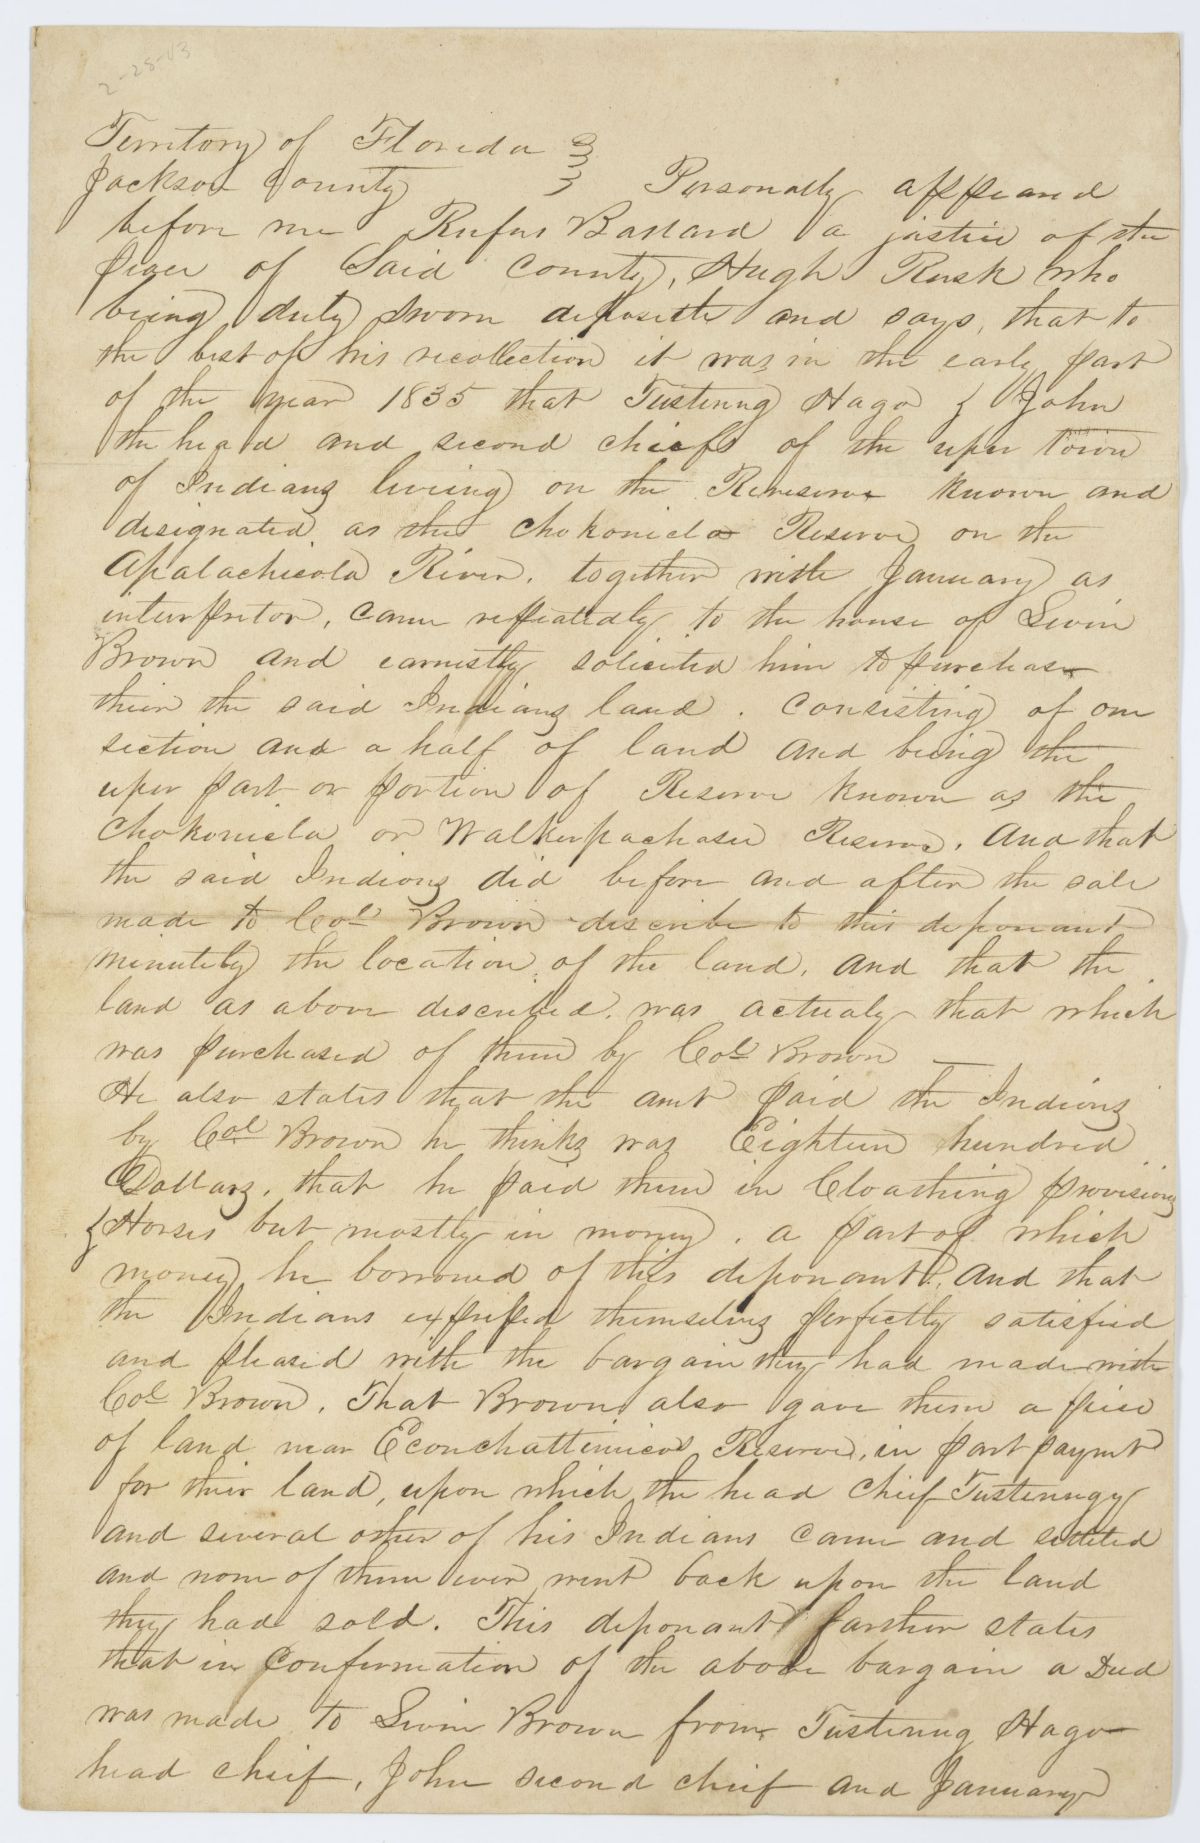 2-28-03
Territory of Florida }
Jackson County } Personally appeared
before me Rufus Ballard a justice of the
peace of Said County, Hugh Rusk who
being duly sworn deposeth and says, that to
the best of his recollection it was in the early part
of the year 1835 that Tustenug Hago & John
the head and second chiefs of the uper town
of Indians living on the Reserve known and
designated as the Chokonicla Reserve on the
Apalachicola River, together with January as
interpretor, came repeatedly to the house of Levin
Brown and earnestly solicited him to purchase
their the said Indians land. consisting of one
section and a half of land and being the
uper part or portion of Reserve known as the
Chokonicla or Walkerpachasee Reserve. And that
the said Indians did before and after the sale
made to Col Brown describe to this deponant
minutely the location of the land, and that the
land as above described, was actualy that which
was purchased of them by Col Brown
He also states that the amt paid the Indians
by Col Brown he thinks was Eighteen hundred
Dollars, that he paid them in Cloathing provisions
& Horses but mostly in money, a part of which
money he borrowed of this deponant. And that
the Indians expressed themselves perfectly satisfied
and pleased with the bargain they had made with
Col Brown. That Brown also gave them a piece
of land near Econchattimicos Reserve, in part paymt
for their land, upon which the head chief Tustenugy
and several other of his Indians came and settled
and none of them ever went back upon the land
they had sold. This deponant farther states
that in confermation of the above bargain a Deed
was made to Levin Brown from Tustenug Hago
head chief, John second chief and January